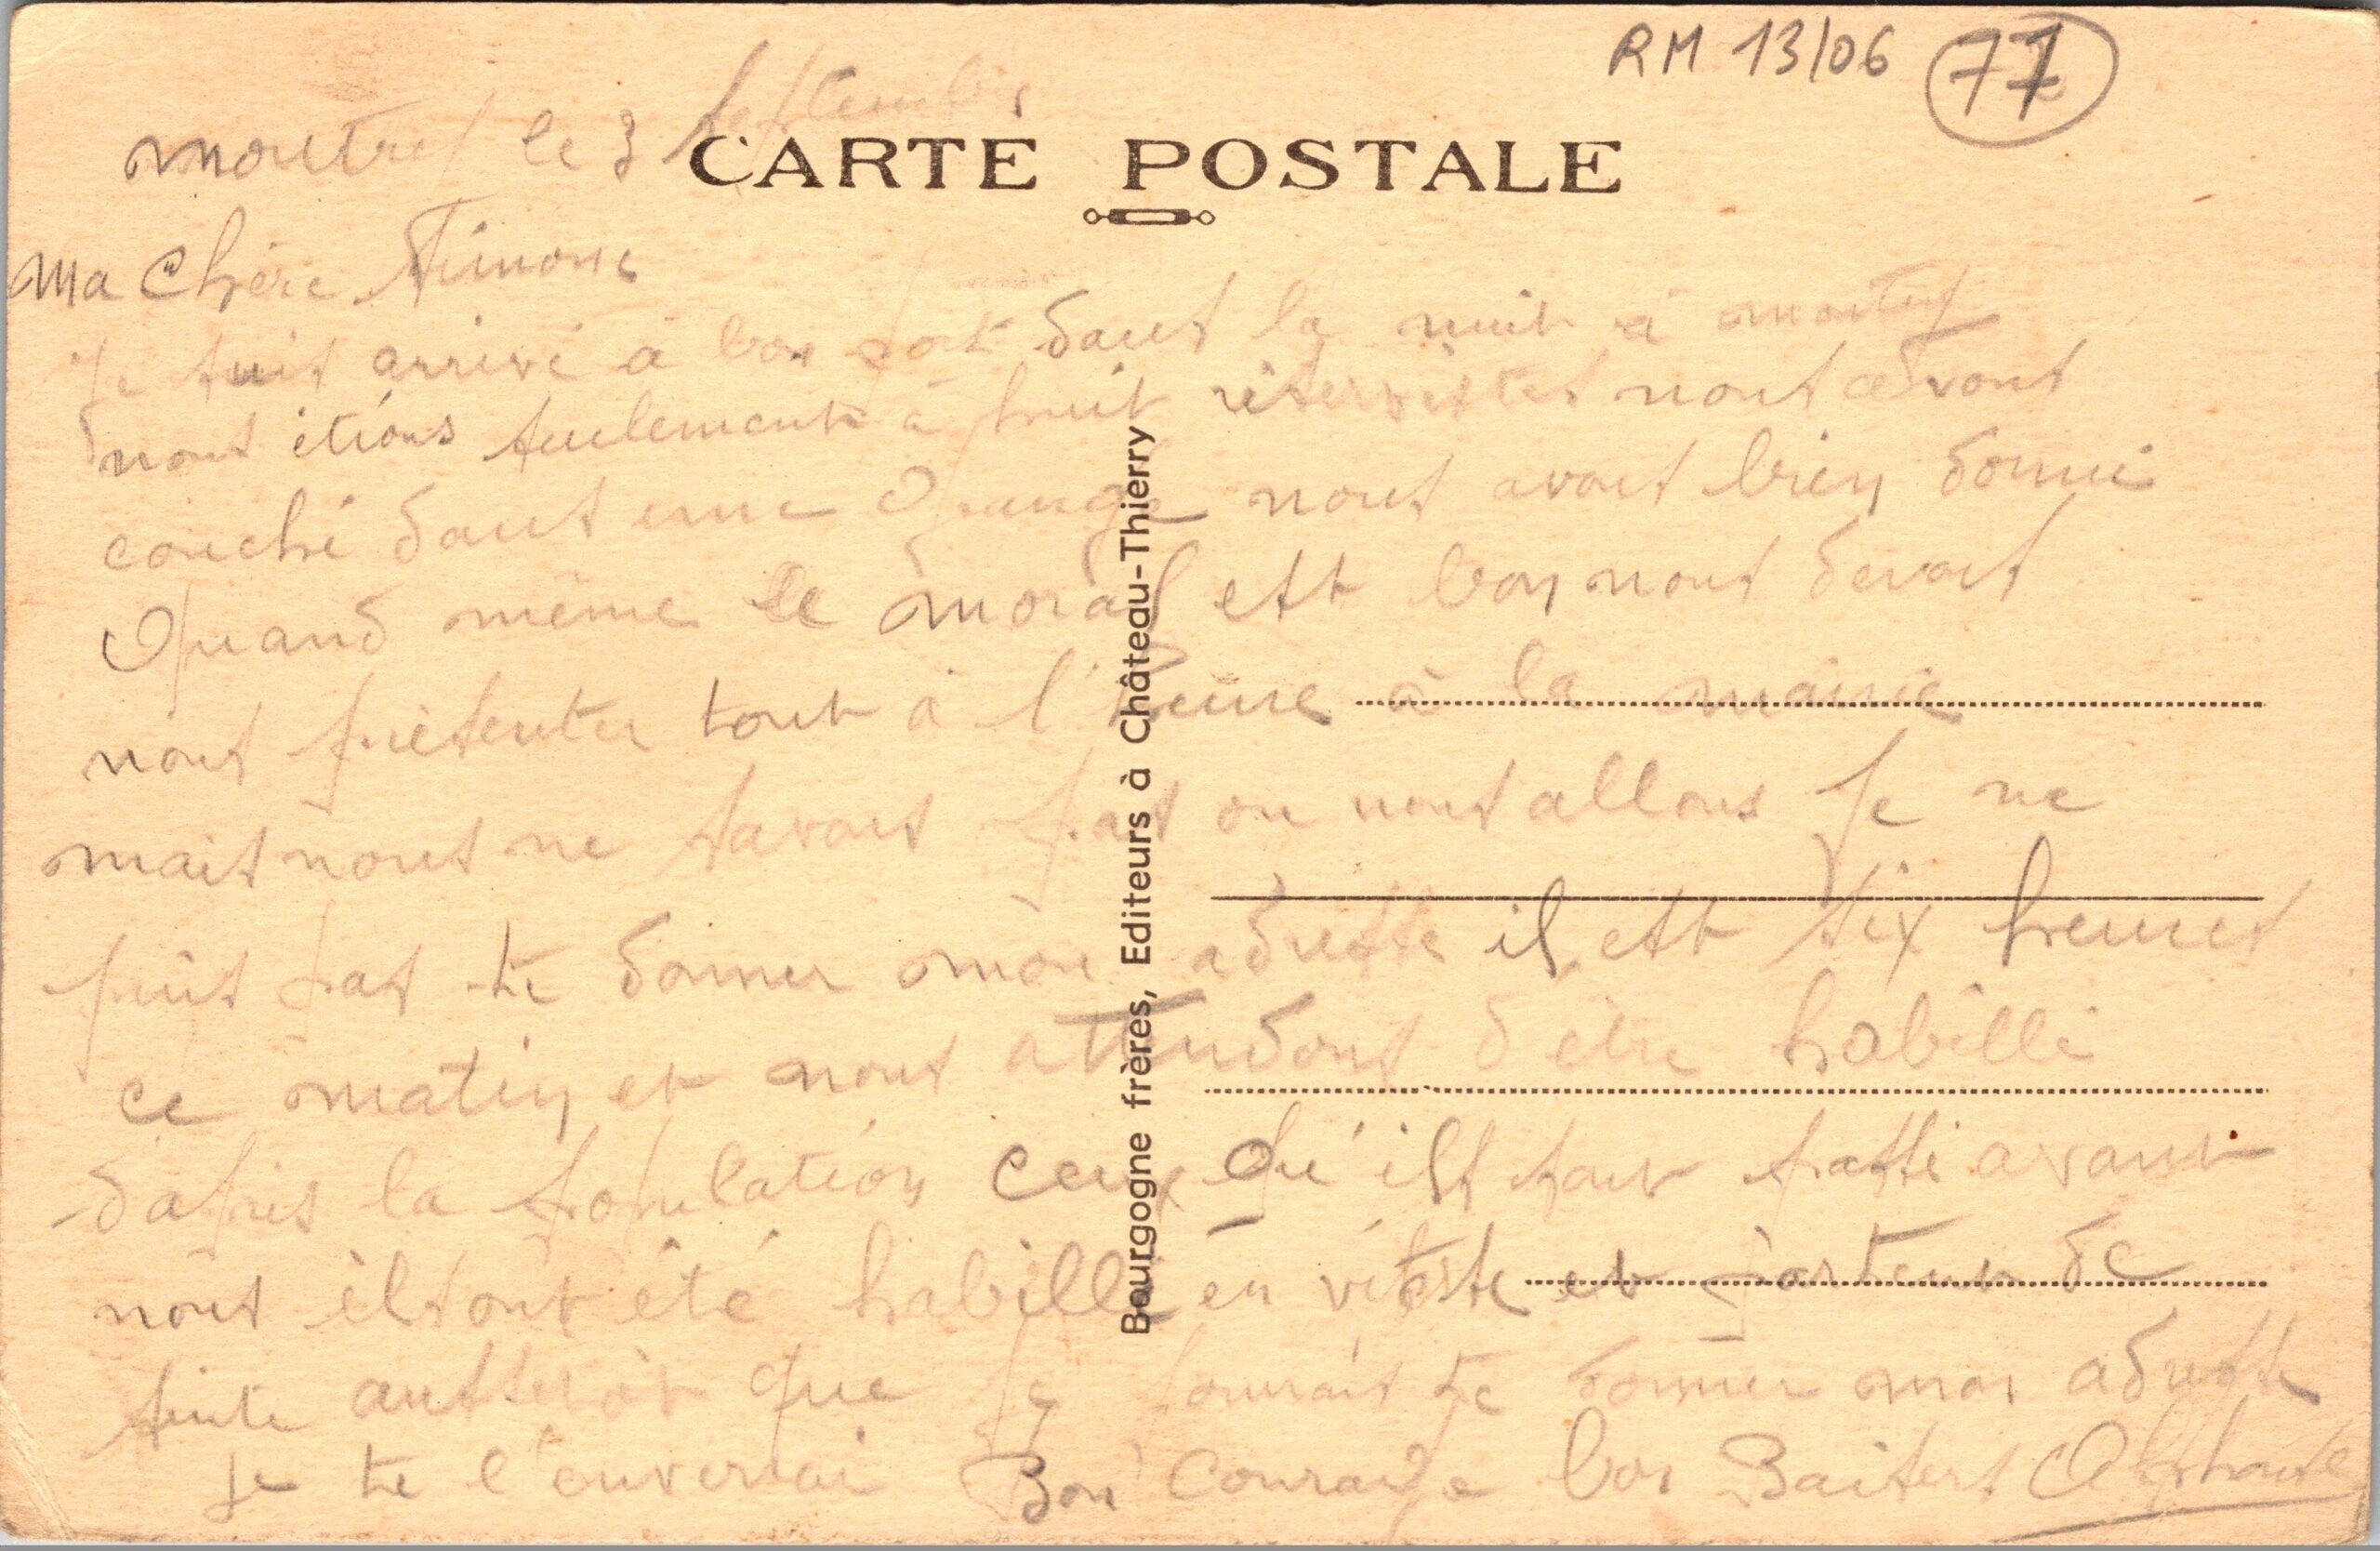 RM 13/06 77
le 3 septembre
CARTE POSTALE
Ma Chère Simone
Je suis arrivé à bon port dans la nuit à
nous étions seulement à huit réservistes nous avons
couché dans une Grange nous avons bien dormi
Quand même le moral est bon nous devons
nous présenter tout à l'heure à la mairie
mais nous ne savons pas ou nous allons Je ne
puis pas te donner mon adresse il est six heures
ce matin et nous attendons d'être habillé
dapres la population ceux Qu'ils sont passé avant
nous ils ont été habillé en veste et de
suite aussitôt que je pourrais te donner mon adresse
je te l'enverrai Bon Courage bon Baisers Alphonse
Bourgogne frères, Editeurs à Château-Thierry